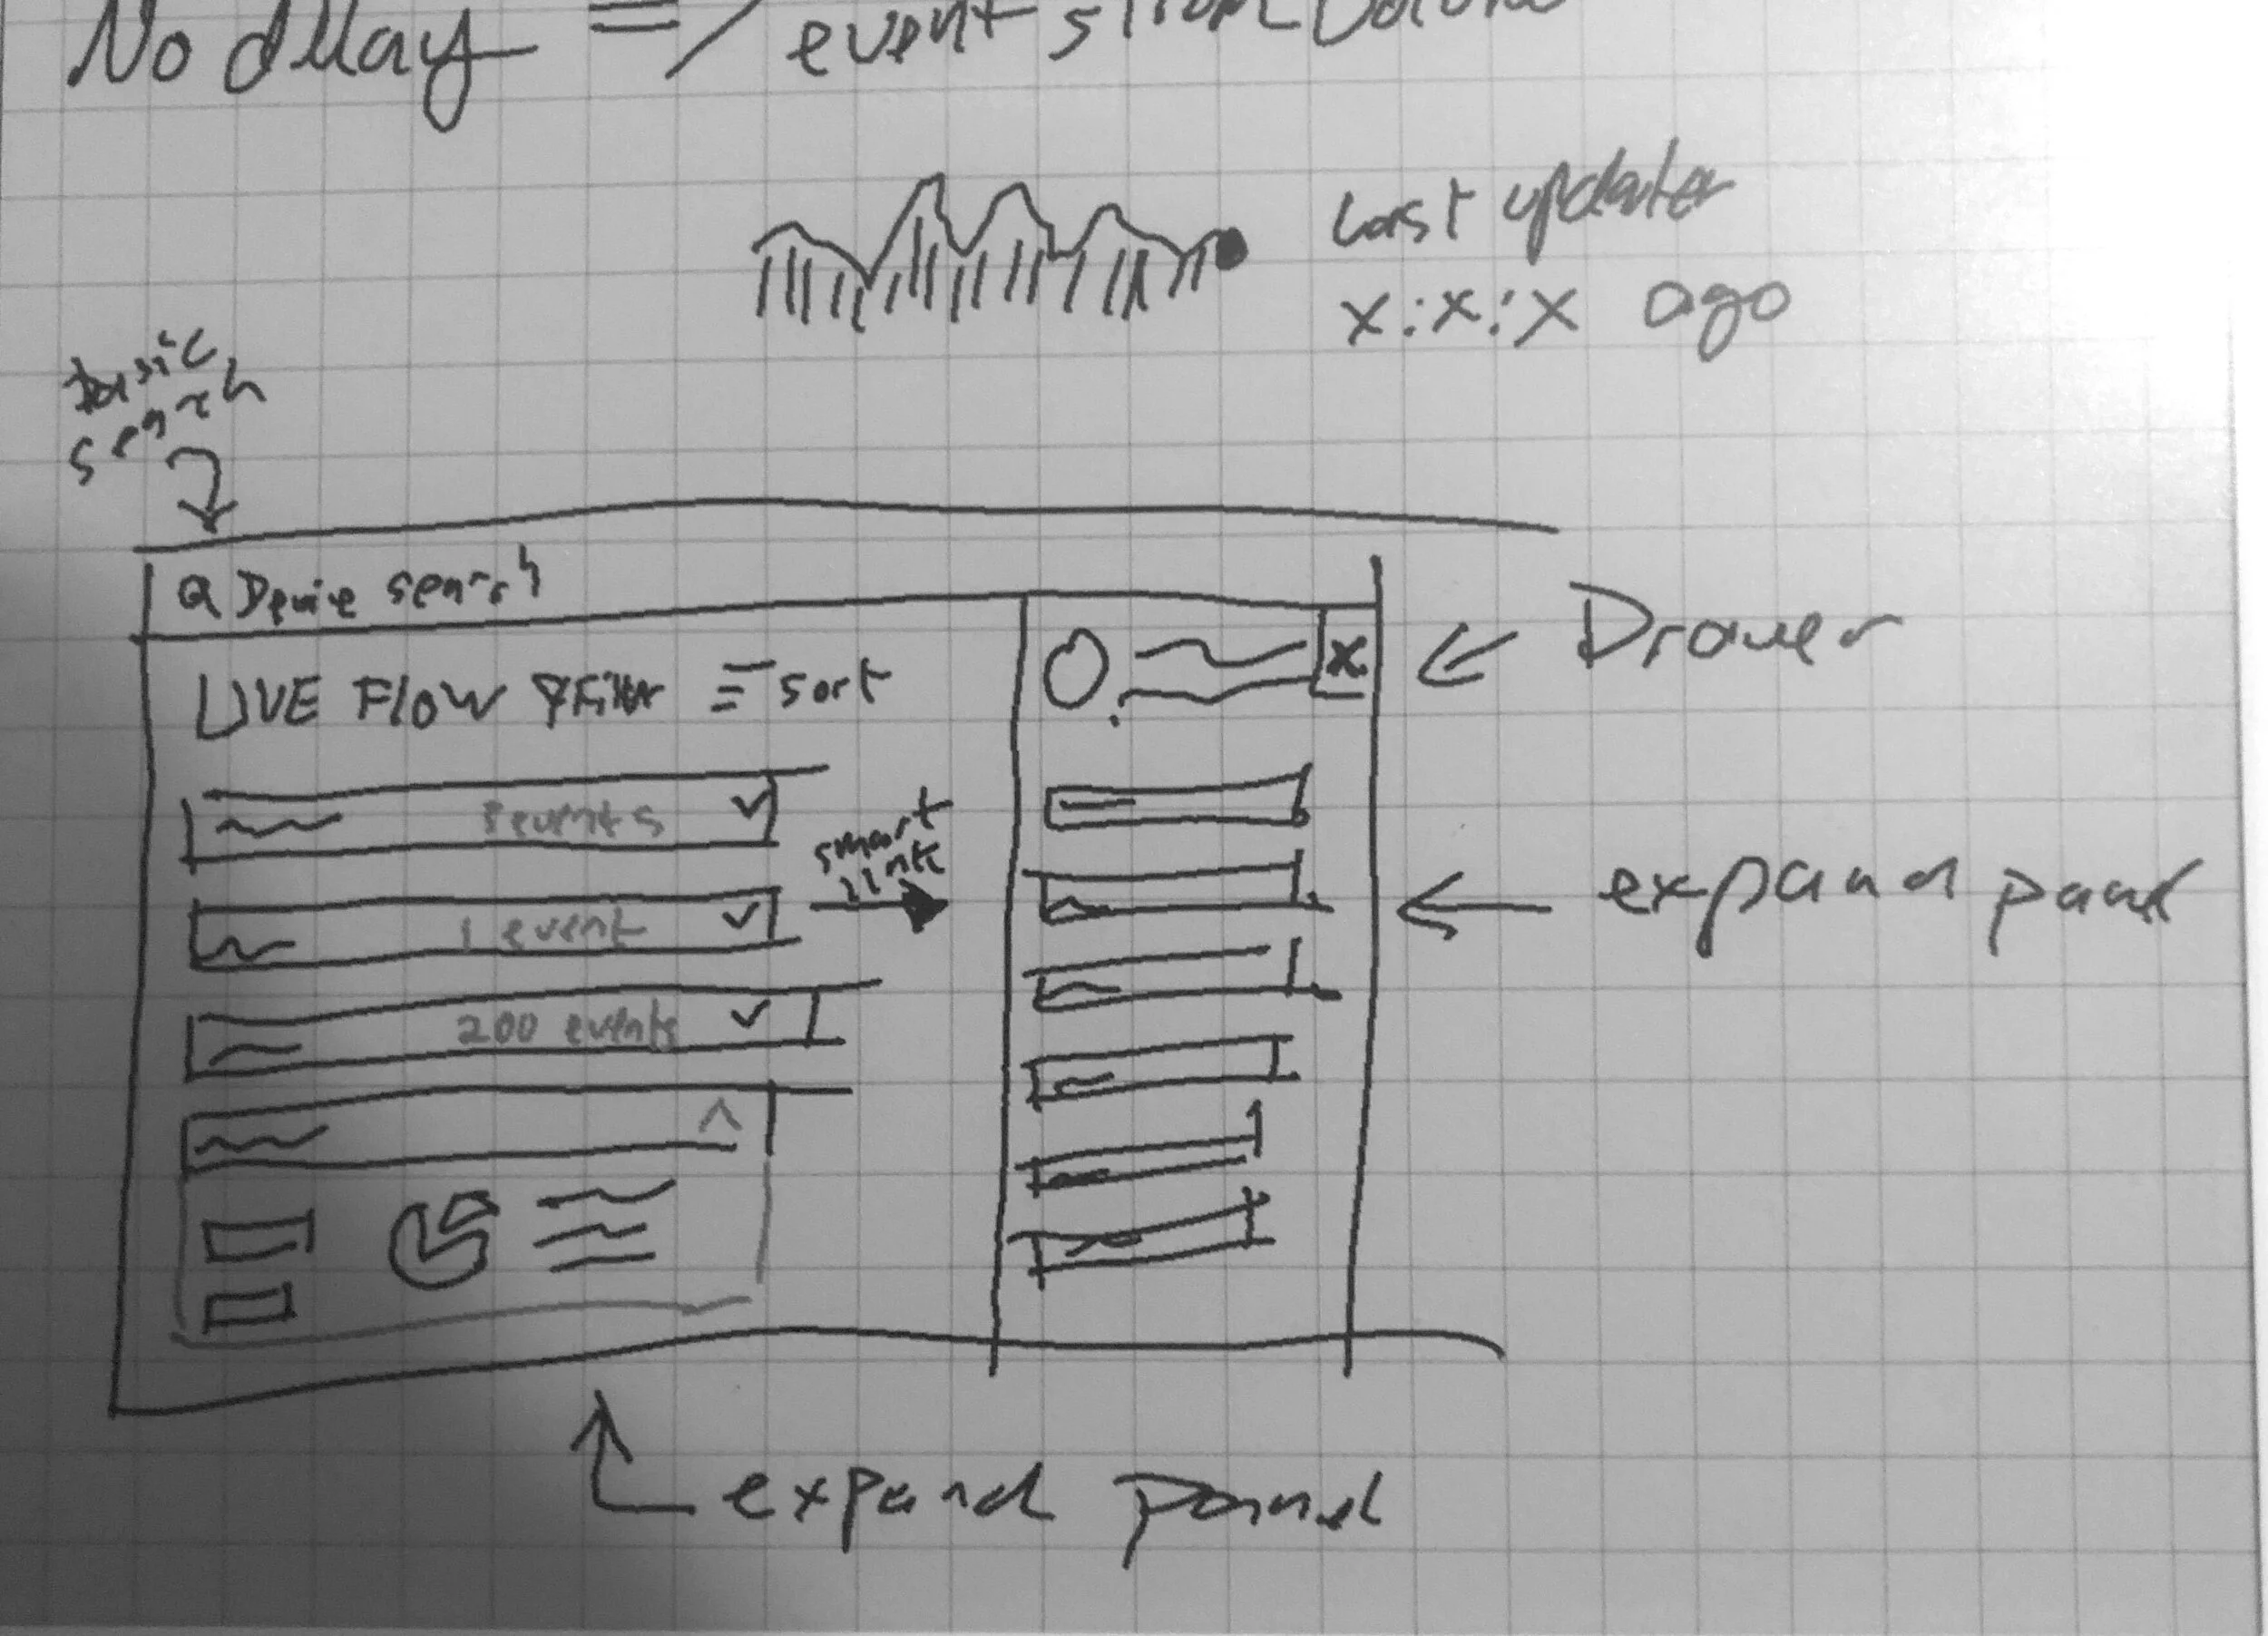 No delay => events from
Last update
x:x:x ago
basic
search
Device search
LIVE FLOW Filter sort
8 events
smart
link
1 event
200 events
x
Drawer
expand panel
expand panel